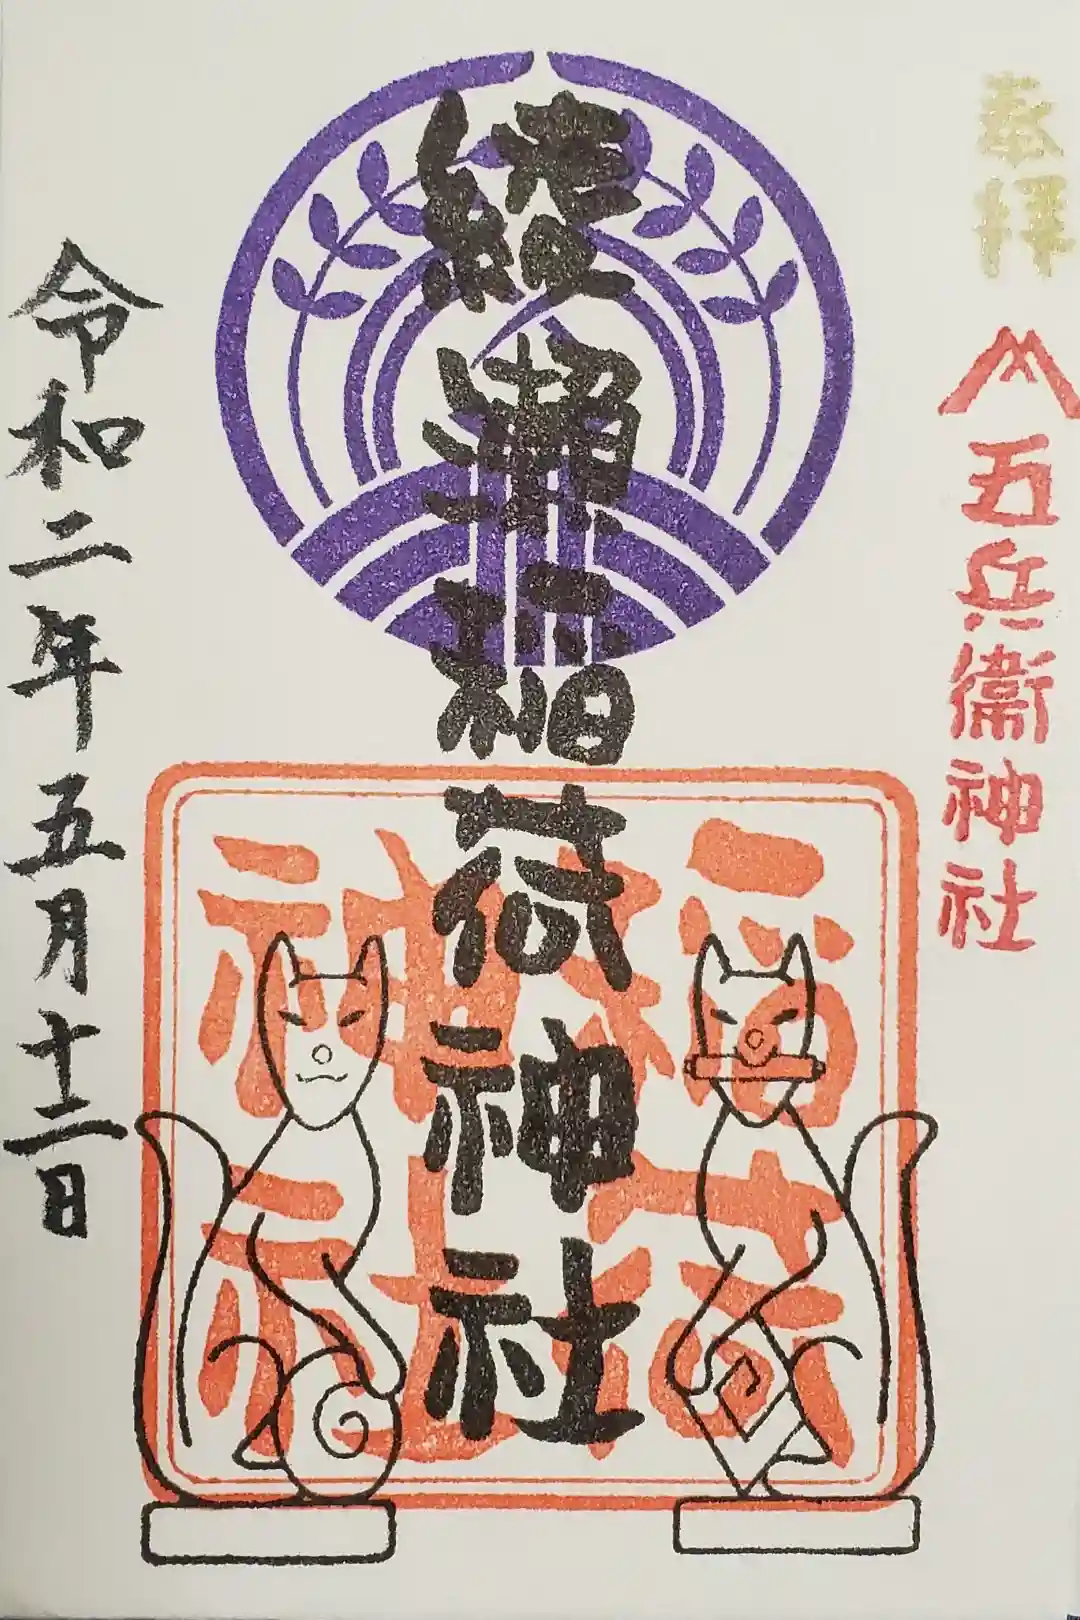 奉拝
五兵衛神社
綾瀬稲荷神社
稲荷
神社
令和二年五月十二日